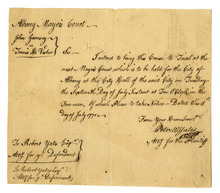 Albany Mayor's Court
John Yancey
vs
Sir
I intend to bring this Cause to Trial at the
next Mayor's Court which is to be held for the City of
Albany at the City Hall of the said City on Tuesday
the Sixteenth Day of July Instant at Ten O'Clock in the
Forenoon, of which Please to take Notice. Dated this
Day of July 177
From Your Humble Servt
Att for the Plaintiff
To Robert Yates Esqr
Att for Defendant
To Robert Yates Esqr
Att for Defendant